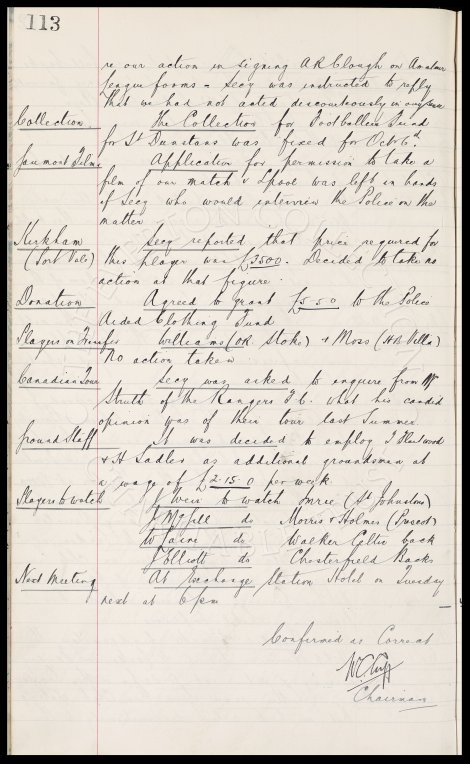 113
re our action in signing A R Clough on Amateur
league forms = Secy was instructed to reply
that we had not acted discourteously in any
Collection The Collection for Footballers Fund
for St Dunstans was fixed for Oct 6th.
Gaumont Films Application for permission to take a
film of our match v Lpool was left in hands
of Secy who would interview the Police on the
matter
Kirkham Secy reported that price required for
(Port Vale) this player was £3500. Decided to take no
action at that figure.
Donation Agreed to grant £5-5-0 to the Police
Aided Clothing Fund
Players on Transfer Williams (OR Stoke) & Moss (HB Villa)
No action taken.
Canadian Tour Secy was asked to enquire from Mr
Struth of the Rangers F.C. what his candid
opinion was of their tour last Summer.
Ground Staff It was decided to employ J
& H Sadler as additional groundsmen at
a wage of £2-15-0 per week
Players to watch J Weir to watch Imrie (St Johnstone)
J McGill do Morris & Holmes (Prescot)
W do Walker Celtic back
J Elliott do Chesterfield Backs
Next Meeting At Exchange Station Hotel on Tuesday
next at 6 pm
Confirmed as Correct
W.C. Cuff
Chairman